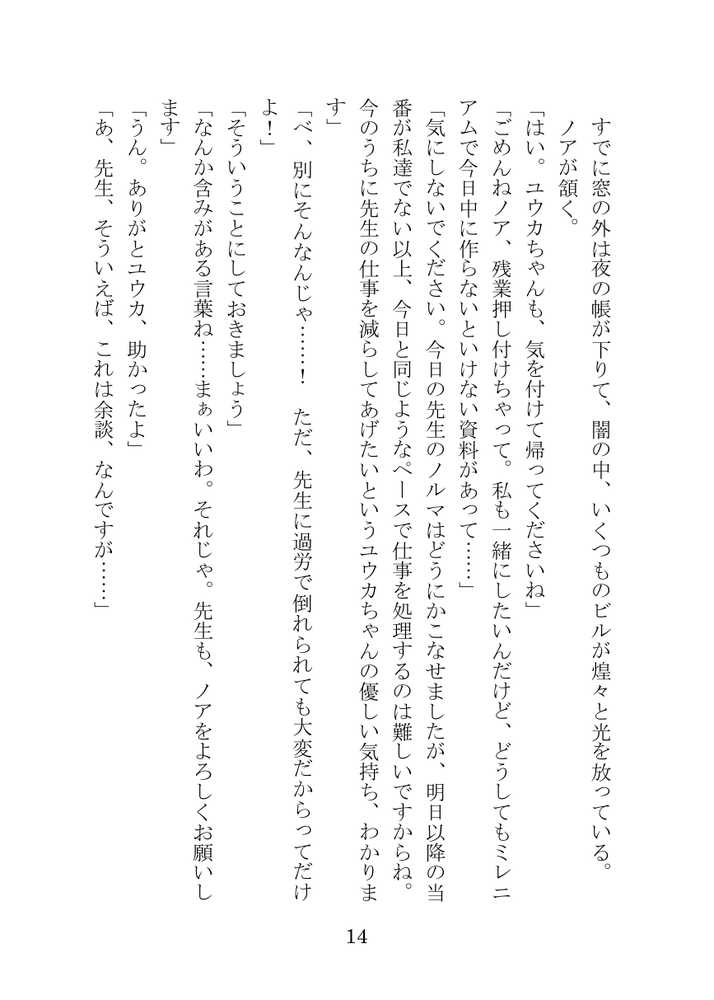 すでに窓の外は夜の帳が下りて、闇の中、いくつものビルが煌々と光を放っている。
ノアが頷く。
「はい。ユウカちゃんも、気を付けて帰ってくださいね」
「ごめんねノア、残業押し付けちゃって。私も一緒にしたいんだけど、どうしてもミレニ
アムで今日中に作らないといけない資料があって……」
「気にしないでください。今日の先生のノルマはどうにかこなせましたが、明日以降の当
番が私達でない以上、今日と同じようなペースで仕事を処理するのは難しいですからね。
今のうちに先生の仕事を減らしてあげたいというユウカちゃんの優しい気持ち、わかりま
す」
「べ、別にそんなんじゃ……！　ただ、先生に過労で倒れられても大変だからってだけ
よ！」
「そういうことにしておきましょう」
「なんか含みがある言葉ね……まぁいいわ。それじゃ。先生も、ノアをよろしくお願いし
ます」
「うん。ありがとユウカ、助かったよ」
「あ、先生、そういえば、これは余談、なんですが……」
14